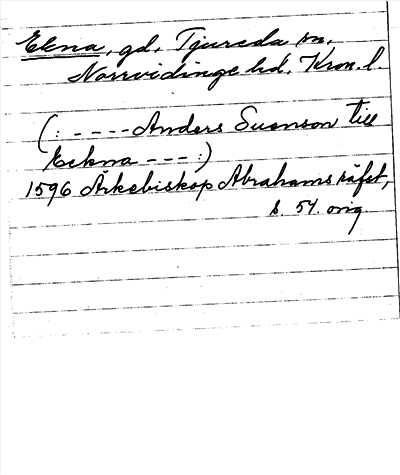 Ekna, gd, Tjureda sn,
Norrvidinge hd, Kron. l.
(: - - - - Anders Suenson till
Eekna - - - :)
1596 Ärkebiskop Abrahams räfst,
s. 54. orig